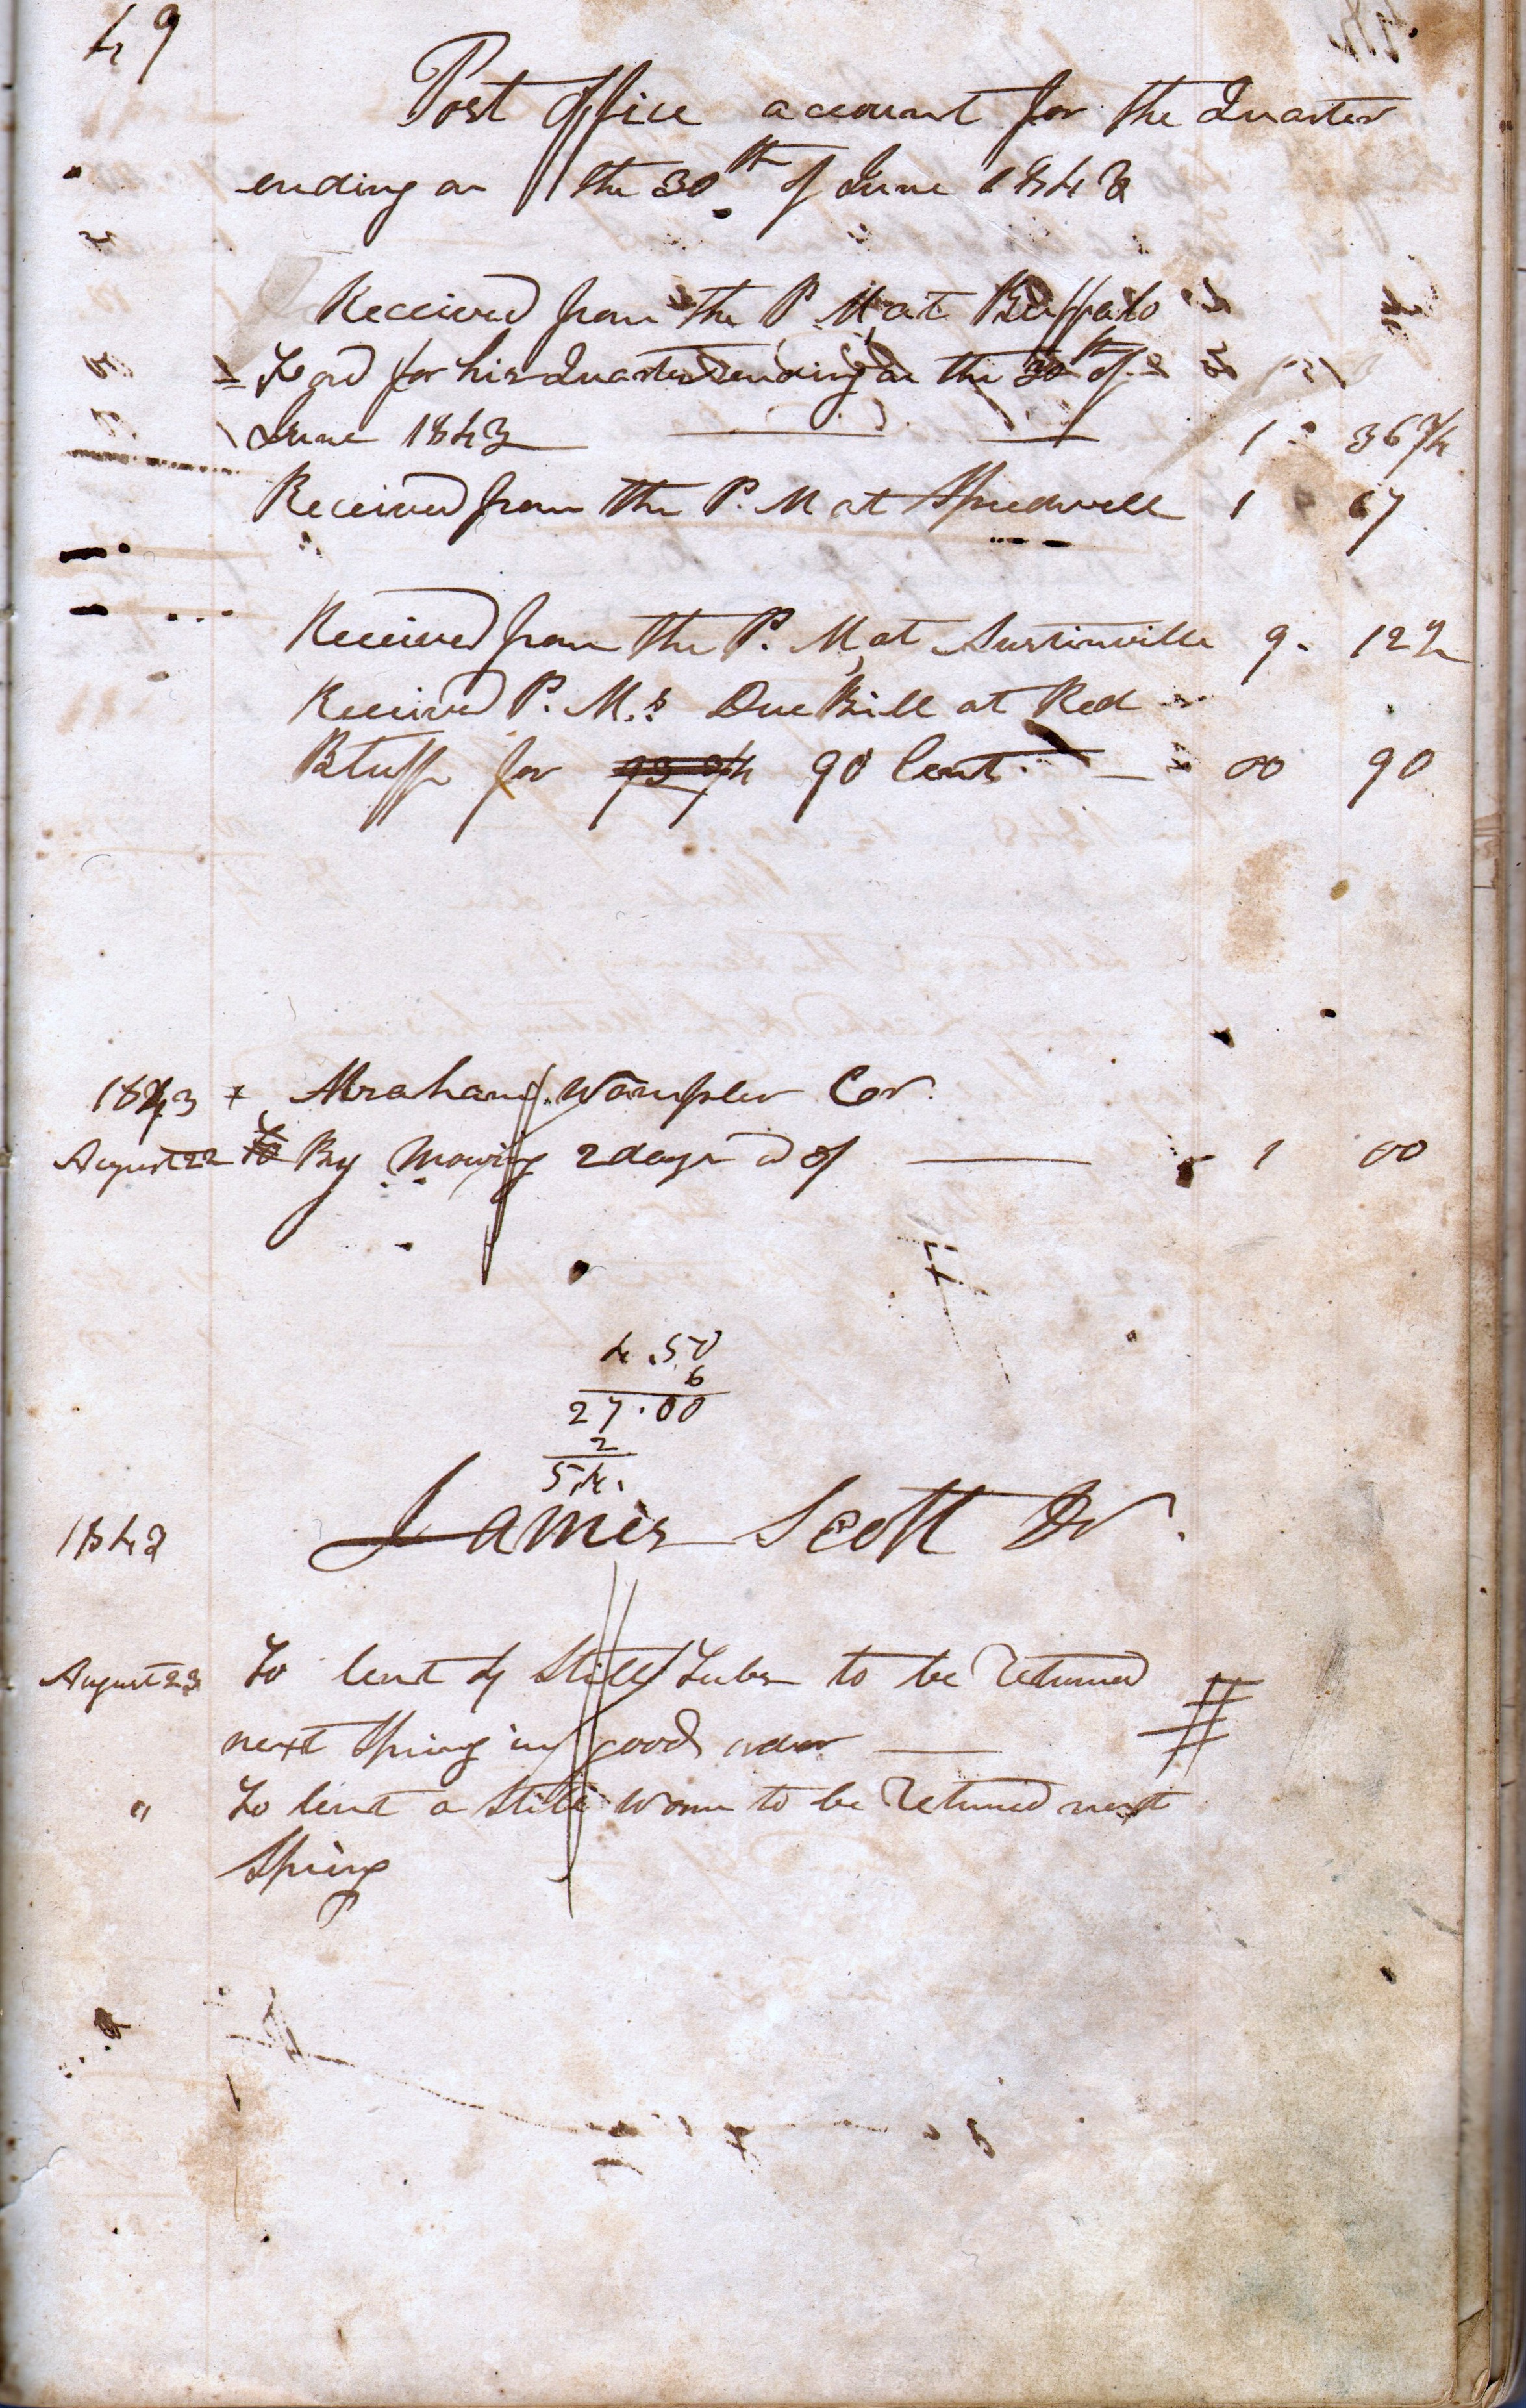 49
Post Office account for the Quarter
ending on the 30th of June 1843
Received from the P. M at Buffalo
Ford for his Quarter ending on the 30th of
June 1843 1 36 3/4
Received from the P. M at Speedwell 1 67
Received from the P. M at Austinville 9. 12 1/2
Received P. M.s Due Bill at Red
Bluff for 90 Cent. 00 90
1843 Abraham Wampler Cr.
August 22 By Mowing 2 days 1 00
4.50
6
27.00
2
54.
1843 James Scott Dr.
August 23 To lent 4 Still Tubs to be Returned
next Spring in good order
" To lent a Still Worm to be Returned next
Spring